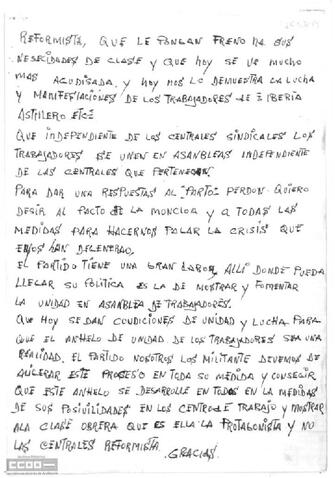 REFORMISTA, QUE LE PONGAN FRENO HA SUS
NESECIDADES DE CLASE Y QUE HOY SE VE MUCHO
MAS AGUDISADA, Y HOY NOS LO DEMUESTRA LA LUCHA
Y MANIFESTACIONES DE LOS TRABAJADORES DE IBERIA
ASTILLERO ETC=
QUE INDEPENDIENTE DE LAS CENTRALES SINDICALES LOS
TRABAJADORES SE UNEN EN ASANBLEAS INDEPENDIENTE
DE LAS CENTRALES QUE PERTENECEN.
PARA DAR UNA RESPUESTAS AL "PARTO" PERDON: QUIERO
DESIR AL PACTO DE LA MONCLOA Y A TODAS LAS
MEDIDAS PARA HACERNOS PAGAR LA CRISIS QUE
ELLOS HAN DEGENERAO,
EL PARTIDO TIENE UNA GRAN LABOR, ALLI DONDE PUEDA
LLEGAR SU POLITICA ES LA DE MOSTRAR Y FOMENTAR
LA UNIDAD EN ASANBLEA DE TRABAJADORES.
QUE HOY SE DAN CONDICIONES DE UNIDAD Y LUCHA PARA
QUE EL ANHELO DE UNIDAD DE LOS TRABAJADORES SEA UNA
REALIDAD. EL PARTIDO NOSOTROS LOS MILITANTE DEVEMOS DE
ESTE PROSESO EN TODA SU MEDIDA Y CONSEGIR
QUE ESTE ANHELO SE DESARROLLE EN TODOS EN LA MEDIDAS
DE SUS POSIVILIDADES EN LOS CENTRO DE TRABAJO Y MOSTRAR
ALA CLASE OBRERA QUE ES ELLA LA PROTAGONISTA Y NO
LAS CENTRALES REFORMISTA.
GRACIAS.
CCOO